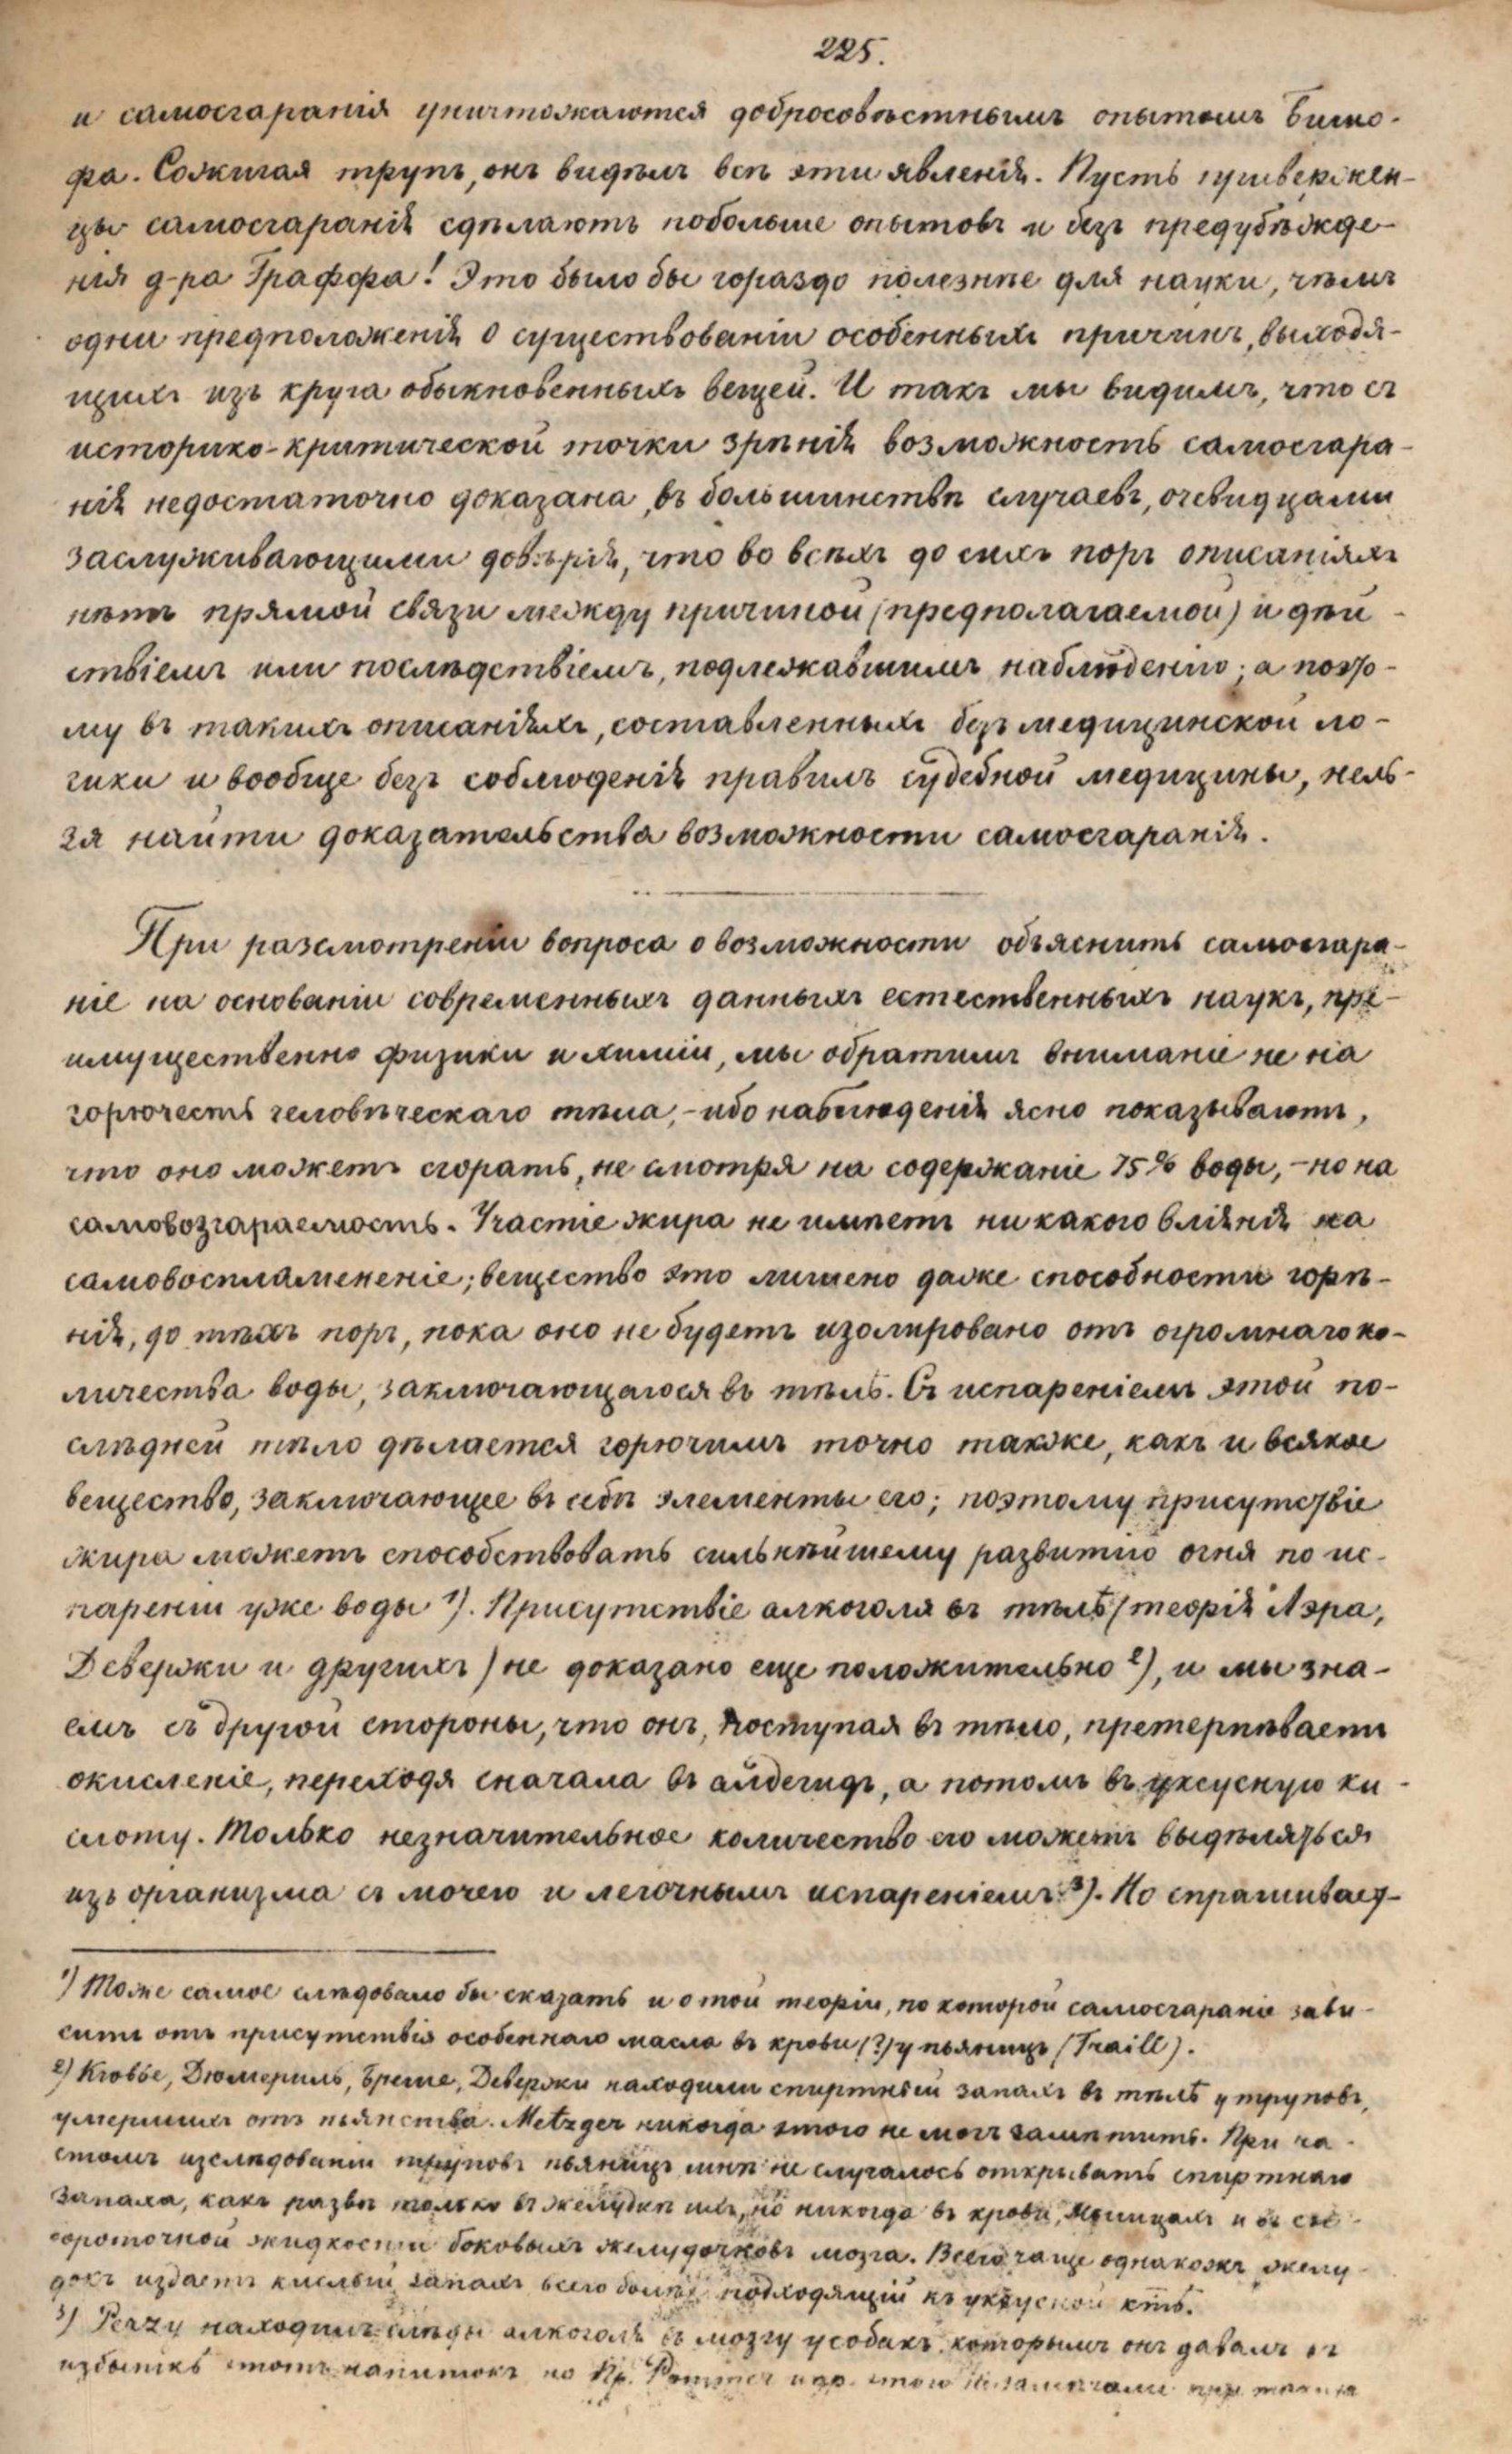 225.
и самосгаранія уничтожаются добросовѣстнымъ опытомъ Бишо-
фа. Сожигая трупъ, онъ видѣлъ всѣ эти явленія. Пусть привержен-
цы самосгаранія сдѣлаютъ побольше опытовъ и безъ предубѣжде-
нія д-ра Граффа! Это было бы гораздо полезнѣе для науки, чѣмъ
одни предположенія о существованіи особенныхъ причинъ, выходя-
щихъ изъ круга обыкновенныхъ вещей. И такъ мы видимъ, что съ
историко-критической точки зрѣнія возможность самосгара-
нія недостаточно доказана, въ большинствѣ случаевъ, очевидцами
заслуживающими довѣрія, что во всѣхъ до сихъ поръ описаніяхъ
нѣтъ прямой связи между причиной (предполагаемой) и дѣй-
ствіемъ или послѣдствіемъ, подлежавшимъ наблюденію; а поэто-
му въ такихъ описаніяхъ, составленныхъ безъ медицинской ло-
гики и вообще безъ соблюденія правилъ судебной медицины, нель-
зя найти доказательства возможности самосгаранія.
При разсмотреніи вопроса о возможности объяснить самосгара-
ніе на основаніи современныхъ данныхъ естественныхъ наукъ, пре-
имущественно физики и химіи, мы обратимъ вниманіе не на
горючесть человѣческаго тѣла, - ибо наблюденія ясно показываютъ,
что оно можетъ сгорать, не смотря на содержаніе 75% воды, - но на
самовозгараемость. Участіе жира не имѣетъ никакого вліянія на
самовоспламененіе; вещество это лишено даже способности горѣ-
нія, до тѣхъ поръ, пока оно не будетъ изолировано отъ огромнаго ко-
личества воды, заключающагося въ тѣлѣ. Съ испареніемъ этой по-
слѣдней тѣло дѣлается горючимъ точно также, какъ и всякое
вещество, заключающее въ себѣ элементы его; поэтому присутствіе
жира можетъ способствовать сильнѣйшему развитію огня по ис-
пареніи уже воды 1). Присутствіе алкоголя въ тѣлѣ (теорія Лэра,
Девержи и другихъ) не доказано еще положительно 2), и мы зна-
емъ съ другой стороны, что онъ, поступая въ тѣло, претерпѣваетъ
окисленіе, переходя сначала въ алдегидъ, а потомъ въ уксусную ки-
слоту. Только незначительное количество его можетъ выдѣляться
изъ организма съ мочею и легочнымъ испареніемъ 3). Но спрашивает-
1) Тоже самое слѣдовало бы сказать и о той теоріи, по которой самосгараніе зави-
ситъ отъ присутствія особеннаго масла въ крови (?) у пьяницъ (Traill).
2) Дюмериль, Девержи находили спиртный запахъ въ тѣлѣ у труповъ,
умершихъ отъ пьянства. Metzger никогда этого не могъ замѣтить. При ча-
стомъ изслѣдованіи труповъ пьяницъ мнѣ не случалось открывать спиртнаго
запаха, какъ развѣ только въ желудкѣ ихъ, но никогда въ крови, мышцахъ и въ
сывороточной жидкости боковыхъ желудочковъ мозга. Всего чаще однакожъ желу-
докъ издаетъ кислый запахъ всего болѣе подходящій къ уксусной ктѣ.
3) находилъ слѣды алкоголя въ мозгу у собакъ, которымъ онъ давалъ въ
избыткѣ этотъ напитокъ, но